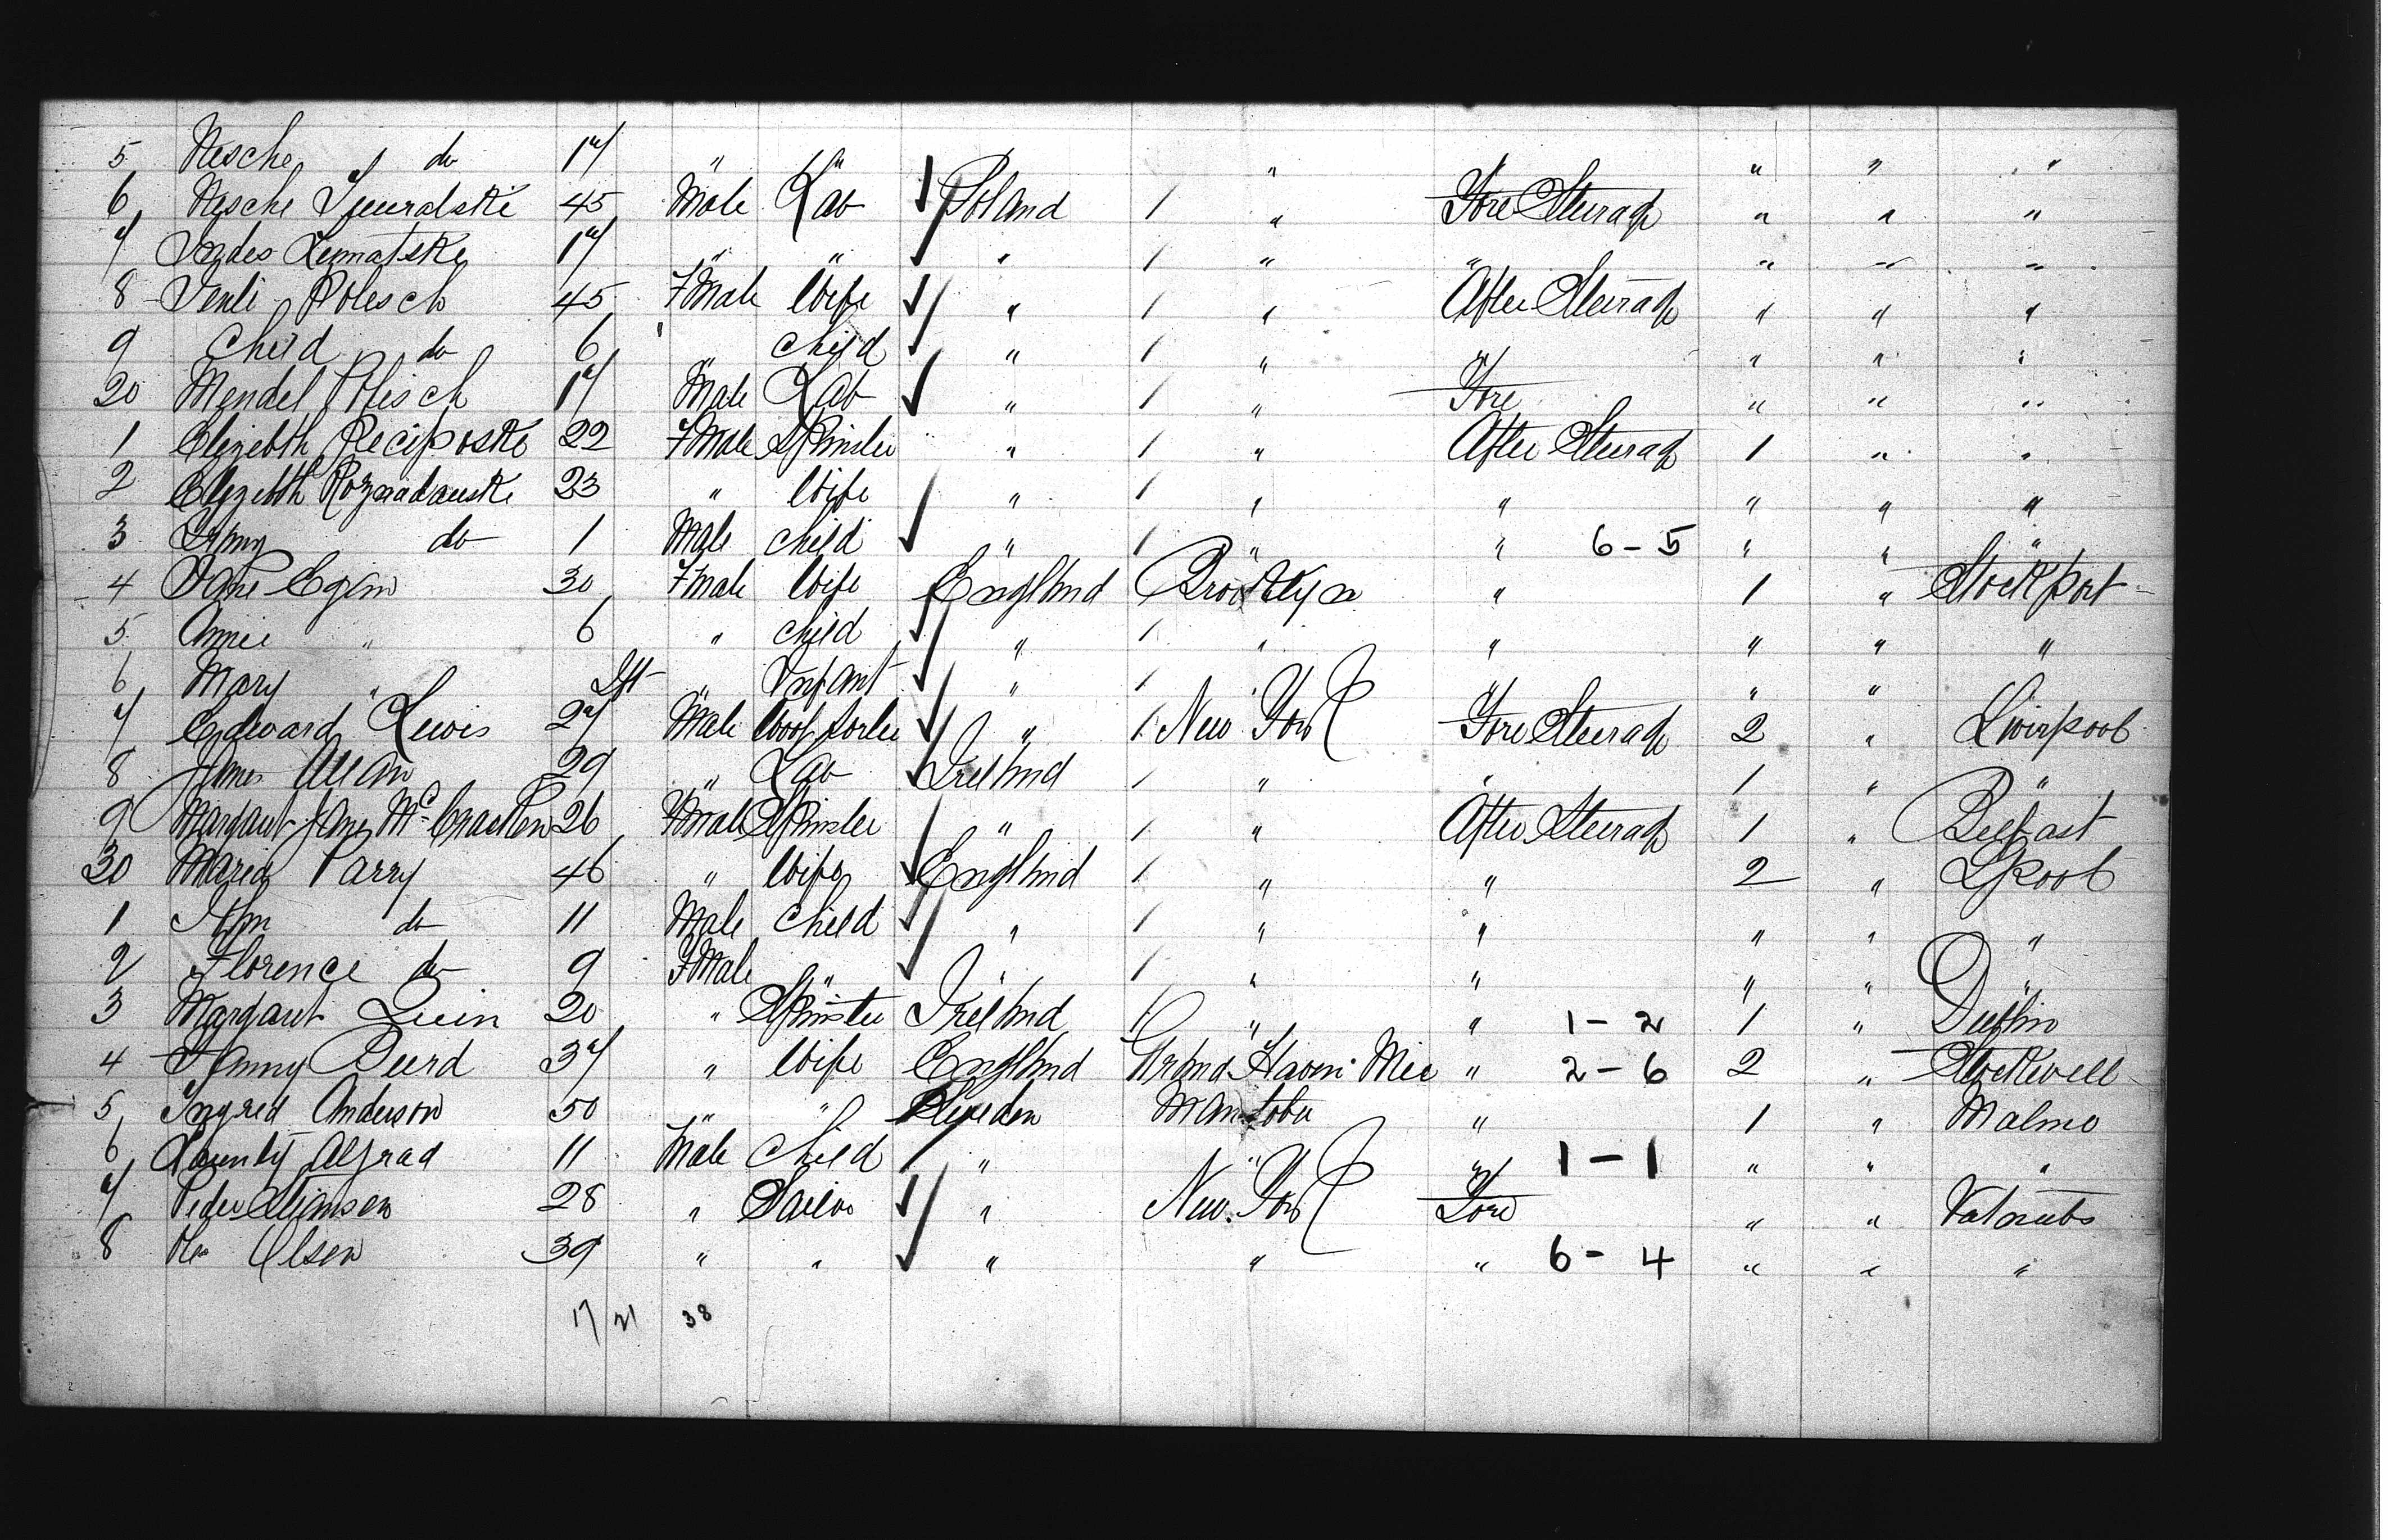 5 Nesche do 17 " " " " " "
6 Nesche 45 Male Lab Poland / " Fore Steerage " " "
7 17 " " " / " " " " "
8 Polesch 45 Fmale Wife " / " After Steerage " " "
9 Child do 6 " Child " / " " " " "
20 Mendel Polisch 17 Male Lab " / " Fore " " "
1 Elizebth Reciposke 22 Fmale Spinster " / " After Steerage 1 " "
2 Elizebth 23 " Wife " / " " " " "
3 do 1 Male Child " / " " 6-5 " " "
4 Jane Egan 30 Fmale Wife England Brooklyn " 1 " Stockport
5 Annie " 6 " Child " / " " " " "
6 Mary " Ift " Infant " / " " " " "
7 Edward Lewis 27 Male Wool Sorter " / New York Fore Steerage 2 " Liverpool
8 James Allan 29 " Lab Ireland / " " 1 " "
9 Margaret Jane McCracken 26 Fmale Spinster " / " After Steerage 1 " Belfast
30 Maria Parry 46 " Wife England / " " 2 " Lpool
1 John do 11 Male Child " / " " " " "
2 Florence do 9 Fmale " " / " " " " "
3 Margaret Quin 20 " Spinster Ireland / " " 1-2 1 " Dublin
4 Fanny Beerd 37 " Wife England Grand Haven Mic " 2-6 2 " Stockwell
5 Ingred Anderson 50 " " Sweden Manitoba " 1 " Malmo
6 Alfrad 11 Male Child " " " 1-1 " " "
7 Peder 28 " Sailor " New York Fore " "
8 Olsen 39 " " " " " 6-4 " " "
17 21 38